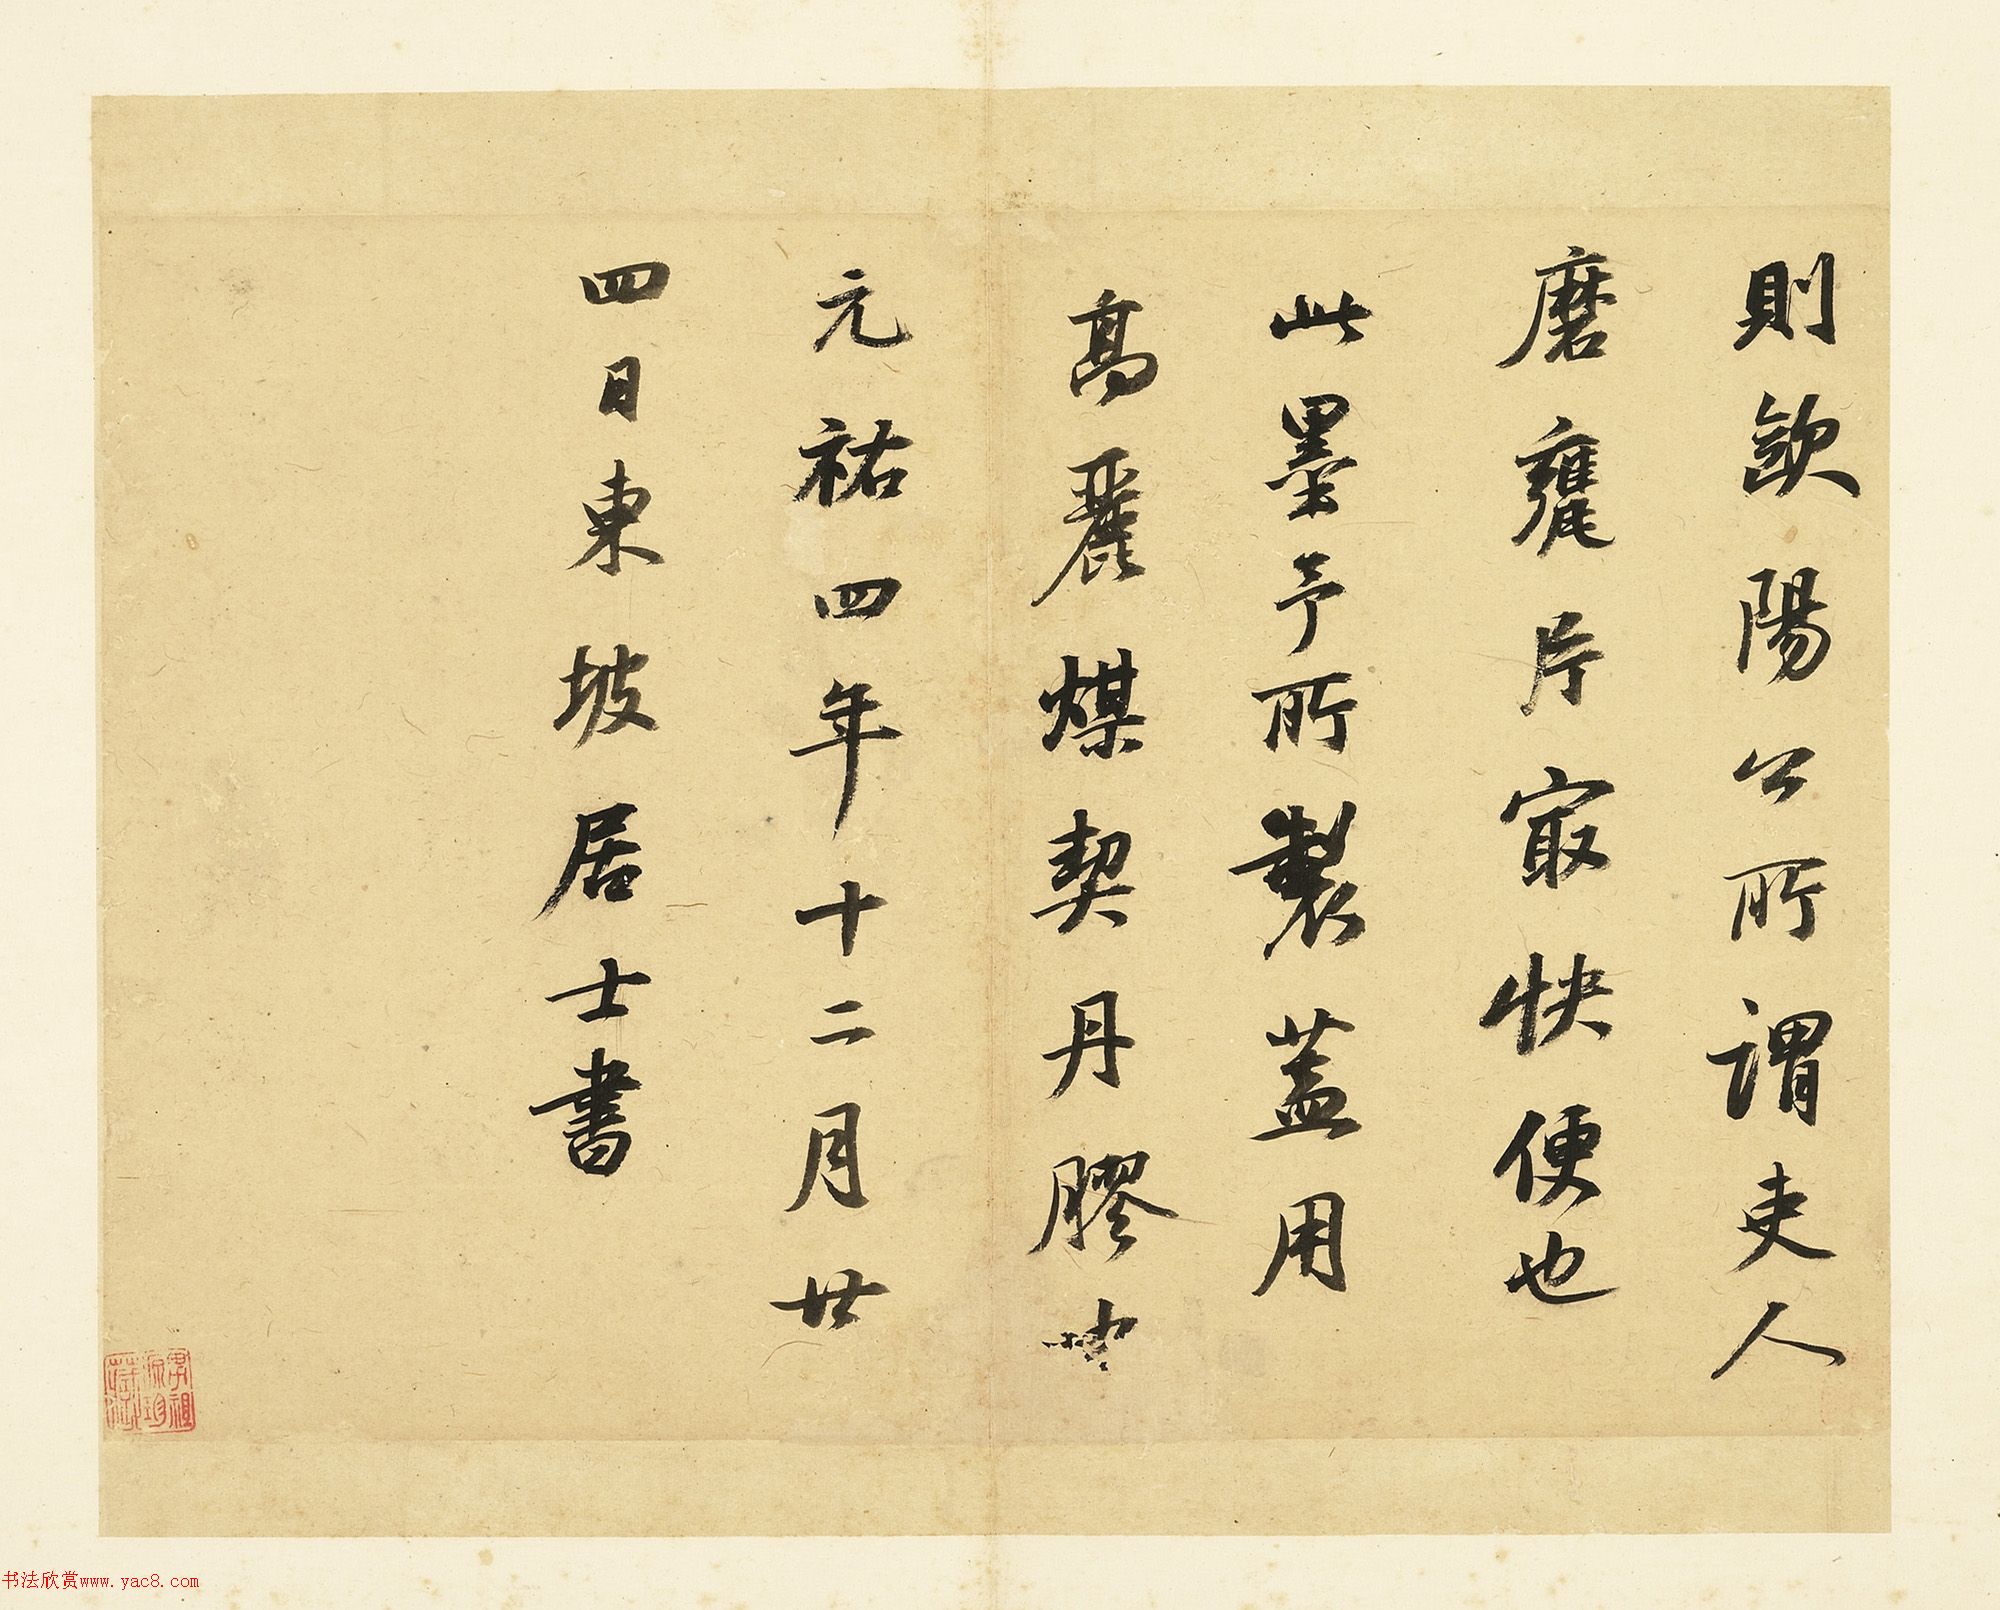 則歐陽公所謂吏人
磨甕片寂快便也
此墨予所製蓋用
高麗煤契丹膠也
元祐四年十二月廿
四日東坡居士書
书法欣赏www.yac8.com